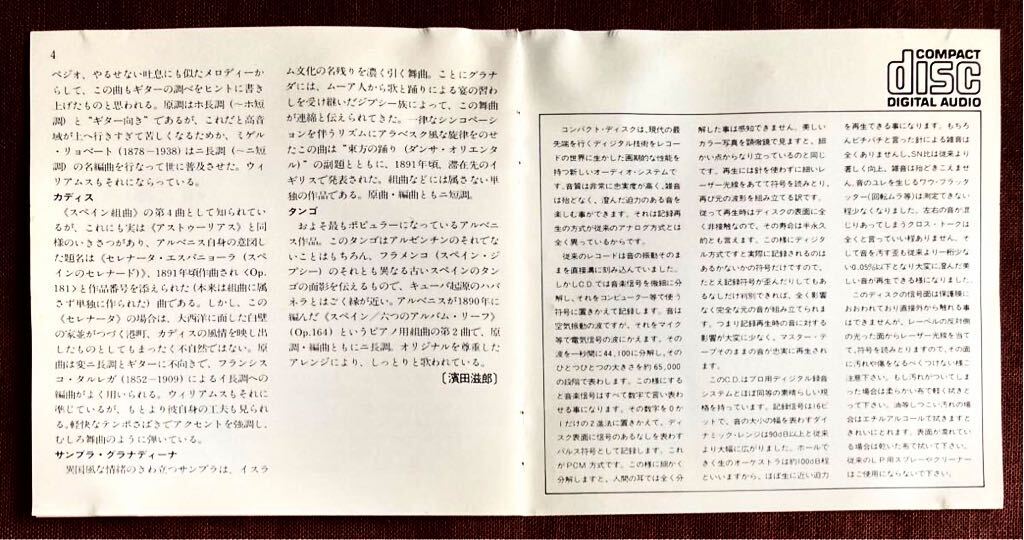 4
ペジオ、やるせない吐息にも似たメロディーか
らして、この曲もギターの調べをヒントに書き
上げたものと思われる。原調はホ長調(〜ホ短
調)と“ギター向き”であるが、これだと高音
域が上へ行きすぎて苦しくなるためか、ミゲル
・リョベート(1878−1938)はニ長調(〜ニ短
調)の名編曲を行なって世に普及させた。ウィ
リアムスもそれにならっている。
カディス
《スペイン組曲》の第4曲として知られている
が、これにも実は《アストゥーリアス》と同
様のいきさつがあり、アルベニス自身の意図し
た題名は《セレナータ・エスパニョーラ(スペ
インのセレナード)》、1891年頃作曲され〈Op.
181〉と作品番号を添えられた(本来は組曲に属
さず単独に作られた)曲である。しかし、この
《セレナータ》の場合は、大西洋に面した白壁
の家並がつづく港町、カディスの風情を映し出
したものとしてもまったく不自然ではない。原
曲は変ニ長調とギターに不向きで、フランシス
コ・タルレガ(1852−1909)によるイ長調への
編曲がよく用いられる。ウィリアムスもそれに
準じているが、もとより彼自身の工夫も見られ
る。軽快なテンポさばきでアクセントを強調し、
むしろ舞曲のように弾いている。
サンブラ・グラナディーナ
異国風な情緒のきわ立つサンブラは、イスラ
ム文化の名残りを濃く引く舞曲。ことにグラナ
ダには、ムーア人から歌と踊りによる宴の習わ
しを受け継いだジプシー族によって、この舞曲
が連綿と伝えられてきた。一律なシンコペーシ
ョンを伴うリズムにアラベスク風な旋律をのせ
たこの曲は“東方の踊り(ダンサ・オリエンタ
ル)”の副題とともに、1891年頃、滞在先のイ
ギリスで発表された。組曲などには属さない単
独の作品である。原曲・編曲ともニ短調。
タンゴ
およそ最もポピュラーになっているアルベニ
ス作品。このタンゴはアルゼンチンのそれでな
いことはもちろん、フラメンコ(スペイン・ジ
プシー)のそれとも異なる古いスペインのタン
ゴの面影を伝えるもので、キューバ起源のハバ
ネラとはごく縁が近い。アルベニスが1890年に
編んだ《スペイン/六つのアルバム・リーフ》
(Op.164)というピアノ用組曲の第2曲で、原
調・編曲ともにニ長調。オリジナルを尊重した
アレンジにより、しっとりと歌われている。
〔濱田滋郎〕
COMPACT
disc
DIGITAL AUDIO
コンパクト・ディスクは、現代の最
先端を行くディジタル技術をレコー
ドの世界に生かした画期的な性能を
持つ新しいオーディオ・システムで
す。音質は非常に忠実度が高く、雑音
は殆どなく、澄んだ迫力のある音を
楽しむ事ができます。それは記録再
生の方式が従来のアナログ方式とは
全く異っているからです。
従来のレコードは音の振動そのま
まを直接溝に刻み込んでいました。
しかしC.D.では音楽信号を微細に分
解し、それをコンピューター等で使う
符号に置きかえて記録します。音は
空気振動の波ですが、それをマイク
等で電気信号の波にかえます。その
波を一秒間に44,100に分解し、その
ひとつひとつの大きさを約65,000
の段階で表わします。この様にする
と音楽信号はすべて数字で言い表わ
せる事になります。その数字を0か
1だけの2進法に置きかえて、ディ
スク表面に信号のあるなしを表わす
パルス符号として記録します。これ
がPCM方式です。この様に細かく
分解しますと、人間の耳では全く分
解した事は感知できません。美しい
カラー写真を顕微鏡で見ますと、細
かい点からなり立っているのと同じ
です。再生には針を使わずに細いレ
ーザー光線をあてて符号を読みとり、
再び元の波形を組み立てる訳です。
従って再生時はディスクの表面に全
く非接触なので、その寿命は半永久
的とも言えます。この様にディジタ
ル方式ですと実際に記録されるのは
あるかないかの符号だけですので、
たとえ記録符号が歪んだりしてもあ
るなしだけ判別できれば、全く影響
なく完全な元の音が組み立てられま
す。つまり記録再生時の音に対する
影響が大変に少なく、マスター・テ
ープそのままの音が忠実に再生され
ます。
このC.D.はプロ用ディジタル録音
システムとほぼ同等の素晴らしい規
格を持っています。記録信号は16ビ
ットで、音の大小の幅を表わすダイ
ナミック・レンジは90dB以上と従来
より大幅に広がりました。ホールで
きく生のオーケストラは約100dB程
といいますから、ほぼ生に近い迫力
を再生できる事になります。もちろ
んピチパチと言った針による雑音は
全くありませんし、SN比は従来より
著しく向上、雑音は殆どきこえませ
ん。音のユレを生じるワウ・フラッタ
ー(回転ムラ等)は測定できない
程少なくなりました。左右の音が混
じりあってしまうクロス・トークは
全くと言っていい程ありません。そ
して音を汚す歪も従来より一桁少な
い0.05%以下となり大変に澄んだ美
しい音が再生できる様になりました。
このディスクの信号面は保護膜に
おおわれており直接外から触れる事
はできませんが、レーベルの反対側
の光った面からレーザー光線を当て
て、符号を読みとりますので、その面
に汚れや傷をなるべくつけない様ご
注意下さい。もし汚れがついてしま
った場合は柔らかい布で軽く拭きと
って下さい。油等しつこい汚れの場
合はエチルアルコールで拭きますと
きれいにとれます。表面が濡れてい
る場合は乾いた布で拭いて下さい。
従来のL.P.用スプレーやクリーナー
はご使用にならないで下さい。